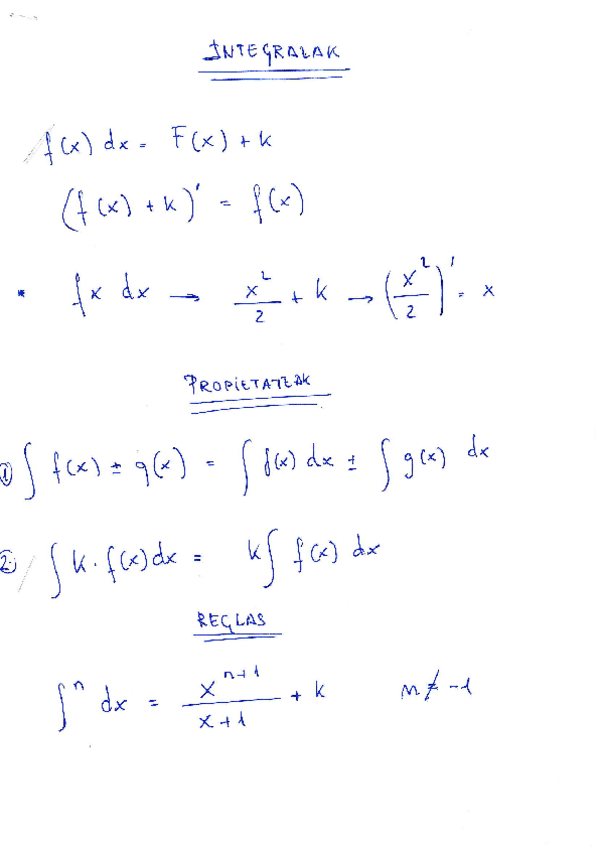 INTEGRALAK
f(x) dx = F(x) + k
(f(x) + k)' = f(x)
* ∫x dx → x²/2 + k → (x²/2)' = x
PROPIETATEAK
① ∫ f(x) ± g(x) = ∫ f(x) dx ± ∫ g(x) dx
② ∫ k · f(x) dx = k ∫ f(x) dx
REGLAS
∫ⁿ dx = xⁿ⁺¹/x+1 + k n ≠ -1